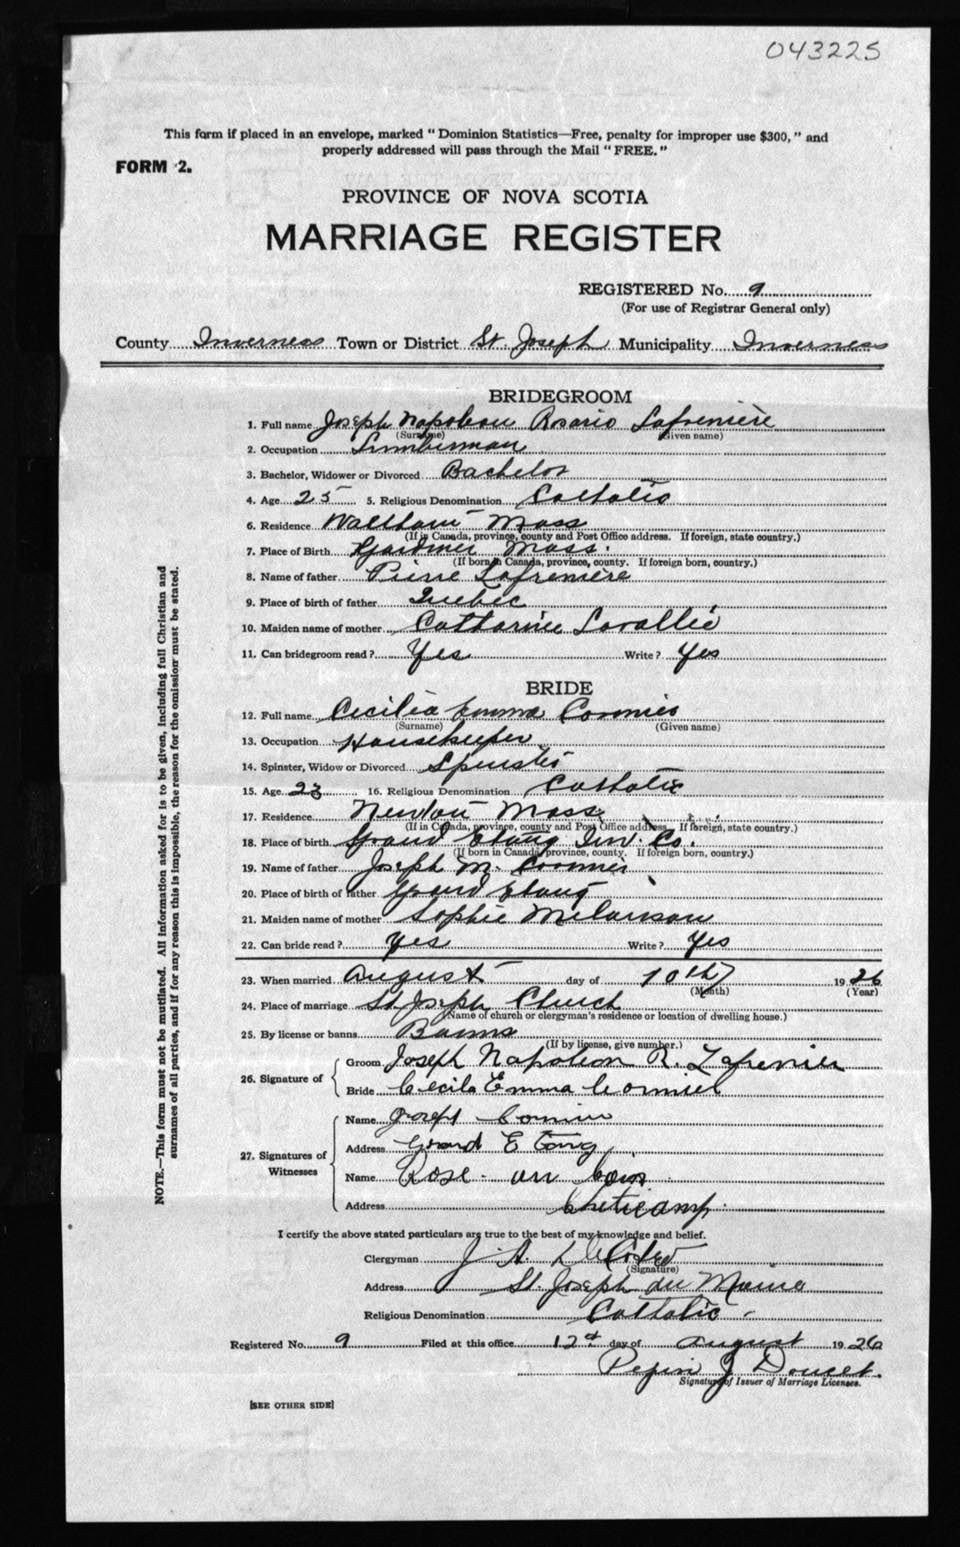 043225
This form if placed in an envelope, marked "Dominion Statistics—Free, penalty for improper use $300," and
properly addressed will pass through the Mail "FREE."
FORM 2.
PROVINCE OF NOVA SCOTIA
MARRIAGE REGISTER
REGISTERED No. 9
(For use of Registrar General only)
County Inverness Town or District St. Joseph Municipality Inverness
BRIDEGROOM
1. Full name Joseph Napoleon Rosario Lafrenière
(Surname) (Given name)
2. Occupation Lumberman
3. Bachelor, Widower or Divorced Bachelor
4. Age 25 5. Religious Denomination Catholic
6. Residence Waltham Mass
(If in Canada, province, county and Post Office address. If foreign, state country.)
7. Place of Birth Gardner Mass.
(If born in Canada, province, county. If foreign born, country.)
8. Name of father Pierre Lafreniere
9. Place of birth of father Quebec
10. Maiden name of mother Catharine Lavallie
11. Can bridegroom read? Yes Write? Yes
BRIDE
12. Full name Cecilia Emma Cormier
(Surname) (Given name)
13. Occupation Housekeeper
14. Spinster, Widow or Divorced Spinster
15. Age 23 16. Religious Denomination Catholic
17. Residence Newton Mass
(If in Canada, province, county and Post Office address, If foreign, state country.)
18. Place of birth Grand Etang Inv. Co.
(If born in Canada, province, county. If foreign born, country.)
19. Name of father Joseph M. Cormier
20. Place of birth of father Grand Etang
21. Maiden name of mother Sophie Melanson
22. Can bride read? Yes Write? Yes
23. When married August day of 10th 1926
(Month) (Year)
24. Place of marriage St. Joseph Church
(Name of church or clergyman's residence or location of dwelling house.)
25. By license or banns Banns
(If by license, give number.)
26. Signature of
Groom Joseph Napoleon R. Lafrenier
Bride Cecila Emma Cormier
27. Signatures of Witnesses
Name Joseph Cormier
Address Grand E Tang
Name Rose
Address Cheticamp.
I certify the above stated particulars are true to the best of my knowledge and belief.
Clergyman J. A. DeCoste
(Signature)
Address St. Joseph du Moine
Religious Denomination Catholic
Registered No. 9 Filed at this office 12th day of August 1926
Pepin J Doucet
Signature of Issuer of Marriage Licenses.
[SEE OTHER SIDE]
NOTE.—This form must not be mutilated. All information asked for is to be given, including full Christian and
surnames of all parties, and if for any reason this is impossible, the reason for the omission must be stated.